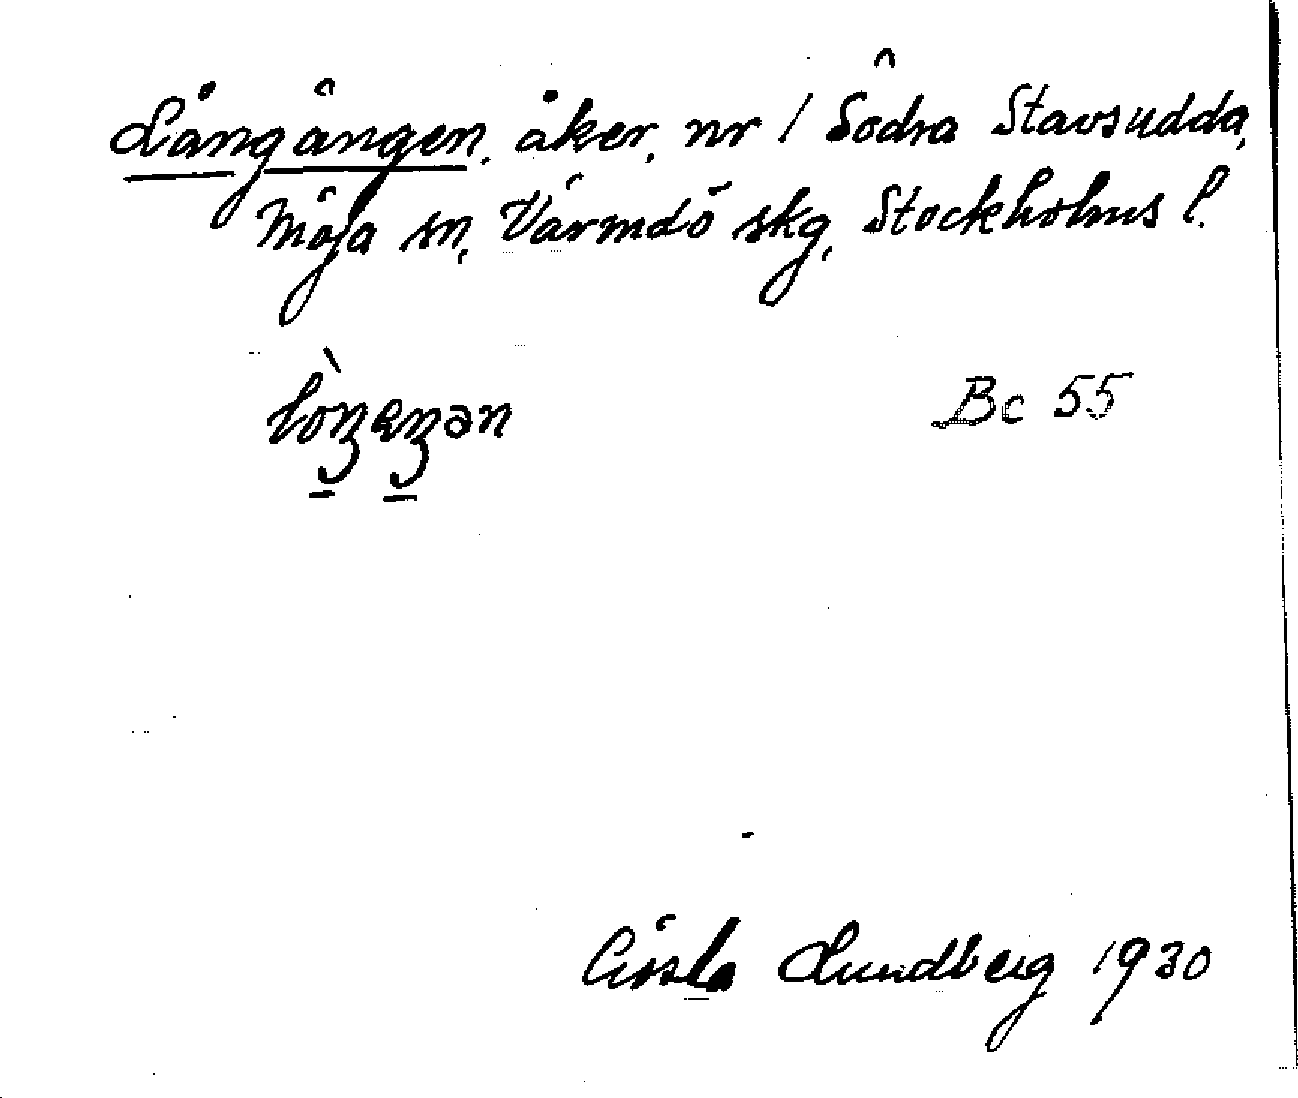 Långängen, åker, nr 1 Södra Stavsudda,
Möja sn, Värmdö skg, Stockholms l.
lòŋeŋən
Bc 55
Cissla Lundberg 1930